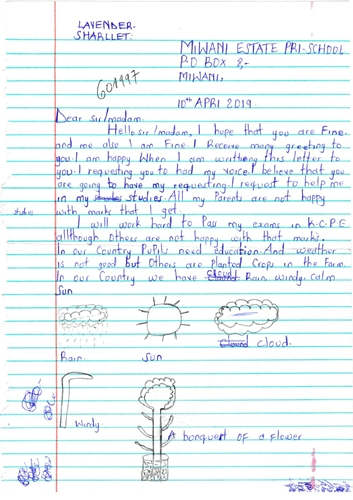 LAVENDER.
SHARLLET.
MIWANI ESTATE PRI-SCHOOL
P.O BOX 8,-
MIWANI,
601197
10th APRI 2019.
Dear sir/madam.
Hello sir/madam, I hope that you are Fine
and me also I am Fine I Receive many greeting to
you. I am happy When I am writting this letter to
you. I requesting you to had my Voice. I believe that you
are going to have my requesting. I request to help me
in my studies. All my Parents are not happy
studies with marks that I get.
I will work hard to Pass my exams in K.C.P.E
allthough others are not happy with that marks.
In our Country Pupils need Education. And weather
is not good but Others are Planted Crops in the Farm
In our Country we have Cloud, Rain, windy. Calm
Sun
Rain.
Sun
Cloud.
Windy
A banquest OF a flower